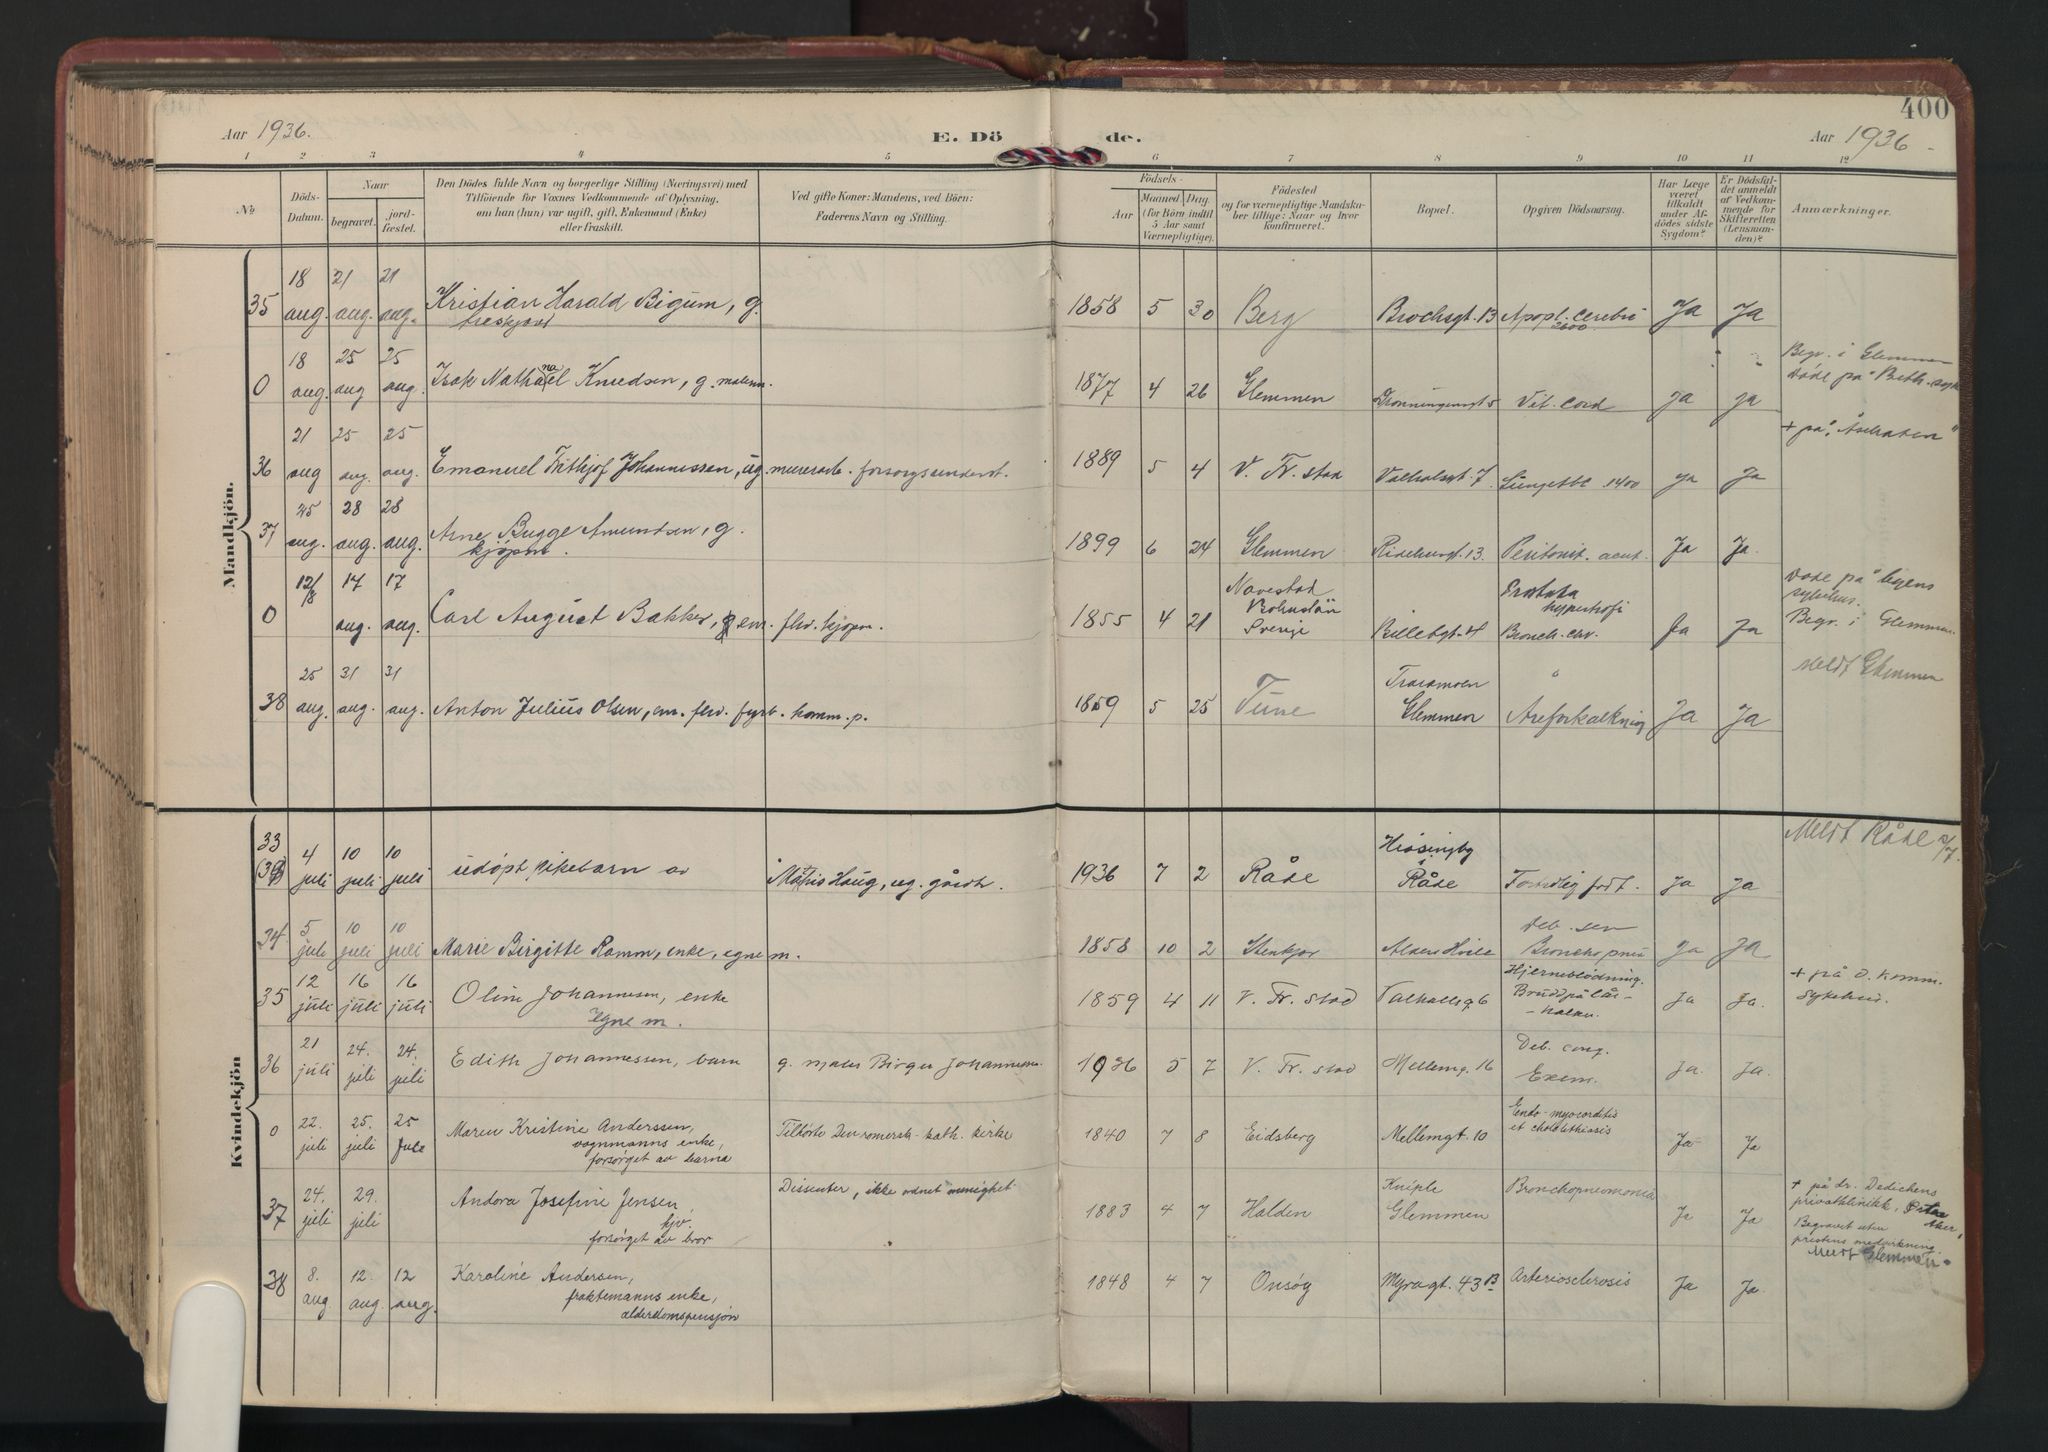 400
Aar 1936.
E. Dö de.
Aar 1936
1 2 3 4 5 6 7 8 9 10 11 12
№
Döds-Datum.
Naar
begravet.
jord-fæstet.
Den Dödes fulde Navn og borgerlige Stilling (Næringsvei) med
Tilföiende for Voxnes Vedkommende af Oplysning,
om han (hun) var ugift, gift, Enkemand (Enke)
eller fraskilt.
Ved gifte Koner: Mandens, ved Börn:
Faderens Navn og Stilling.
Födsels-
Aar
Maaned Dag.
(for Börn indtil
5 Aar samt
Værnepligtige).
Födested
og for værnepligtige Mandska-
ber tillige: Naar og hvor
konfirmeret.
Bopæl.
Opgiven Dödsaarsag.
Har Læge
været
tilkaldt
under Af-
dödes sidste
Sygdom?
Er Dödsfal-
det anmeldt
af Vedkom-
mende for
Skifteretten
(Lensman-
den)?
Anmærkninger.
Mandkjön.
35 18 aug. 21 aug. 21 aug. Kristian Harald Bigum, g. 1858 5 30 Berg Brochsgt. 13 Apopl. cerebri Ja Ja
0 18 aug. 25 aug 25 aug. Isak Nathanael Knudsen, g. 1877 4 26 Glemmen Vit. cord Ja Ja Begr. i Glemmen
Döde på Beth. syk
36 21 aug 25 aug. 25 aug. Emanuel Fritkjof Johannessen, ug. murerarb. forsorgsunderst. 1889 5 4 V. Fr. stad Valhalsgt. 7 ja Ja + på
37 25 aug. 28 aug. 28 aug. Arne Bugge Amundsen, g. kjöpm. 1899 6 24 Glemmen 13. Peritonit. acut. Ja Ja
0 12/8 17 aug. 17 aug. Carl August Bakker, em. fhv. kjöpm. 1855 4 21 Navestad Bohuslän Sverige Billebgt. 4 Prostata hypertrofi Bronch. chr. Ja Ja Döde på byens sykehus.
Begr. i Glemmen.
38 25 aug. 31 aug. 31 aug. Anton Julius Olsen, em. fhv. fyrb. komm. p. 1859 5 25 Tune Traramoen Glemmen Åreforkalkning Ja Ja Meldt Glemmen
Kvindekjön
33 4 juli 10 juli 10 juli udöpt pikebarn av Haug, ug. gårdb. 1936 7 2 Råde Råde Fortidlig födt. Ja Ja Meldt Råde 2/7.
34 5 juli 10 juli 10 juli Marie Birgitte Ramm, enke, egne m. 1858 10 2 Stenkjær Alders Hvile Deb. sen Bronchopneu Ja Ja
35 12 juli 16 juli 16 juli Oline Johannesen, enke
Egne m. 1859 4 11 V. Fr. stad Valhallsg. 6 Hjerneblödning. Brudd på lår-halsen. Ja Ja. + på o. komm. sykehus.
36 21 juli 24. juli 24. juli Edith Johannessen, barn g. maler Birger Johannessen. 1936 5 7 V. Fr. stad Mellemg. 16 Deb. cong. Exem. Ja. Ja.
0 22. juli 25. juli 25 juli Maren Kristine Anderssen,
vognmanns enke,
forsörget av barna Tilhörte Den romersk-kath. kirke 1840 7 8 Eidsberg Mellemgt. 10 Endo-myocarditis et cholelithiasis Ja Ja
37 24. juli 29. juli Andora Josefine Jensen,
kjv.
forsörget av bror Dissenter, ikke ordnet menighet 1883 4 7 Halden Kniple Glemmen Bronchopneumonia Ja Ja + på dr. Dedichens
privatklinikk, Östre Aker,
Begravet uten
prestens medvirkning.
Meldt Glemmen.
38 8. aug. 12. aug. 12 aug. Karoline Andersen,
fraktemanns enke,
alderdomspensjon 1848 4 7 Onsöy Myragt. 43 B Arteriosclerosis Ja Ja.